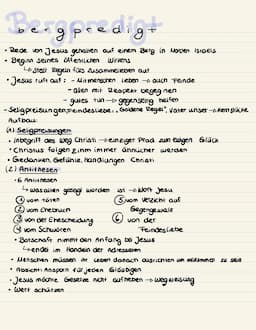 Bergpredigt
bergpredigt
• Rede von Jesus gehalten auf einem Berg in Norden Israels
• Beginn seines öffentlichen Wirkens
↳ stellt Regeln fürs Zusammenleben auf
• Jesus ruft auf: - Mitmenschen lieben → auch Feinde
- allen mit Respekt begegnen
- gutes tun → gegenseitig helfen
- Seligpreisungen, Feindesliebe, "Goldene Regel", Vater unser →
Aufbau:
(1) Seligpreisungen
• Inbegriff des Weg Christi → einziger Pfad zum ewigen Glück
• Christus folgen & ihm immer ähnlicher werden
• Gedanken, Gefühle, Handlungen Christi
(2) Antithesen
• 6 Antithesen
↳ was allen gesagt worden ist → Wort Jesu
① vom Töten
② vom Ehebruch
③ von der Ehescheidung
④ vom Schwören
⑤ vom Verzicht auf
Gegengewalt
⑥ von der
Feindesliebe
• Botschaft nimmt den Anfang bei Jesus
↳ endet im Handeln der Adressaten
• Menschen müssen ihr Leben danach ausrichten um zu sein
• Absicht: Ansporn für jeden Gläubigen
• Jesus möchte Gesetze nicht aufheben → Wegweisung
• Wert schätzen